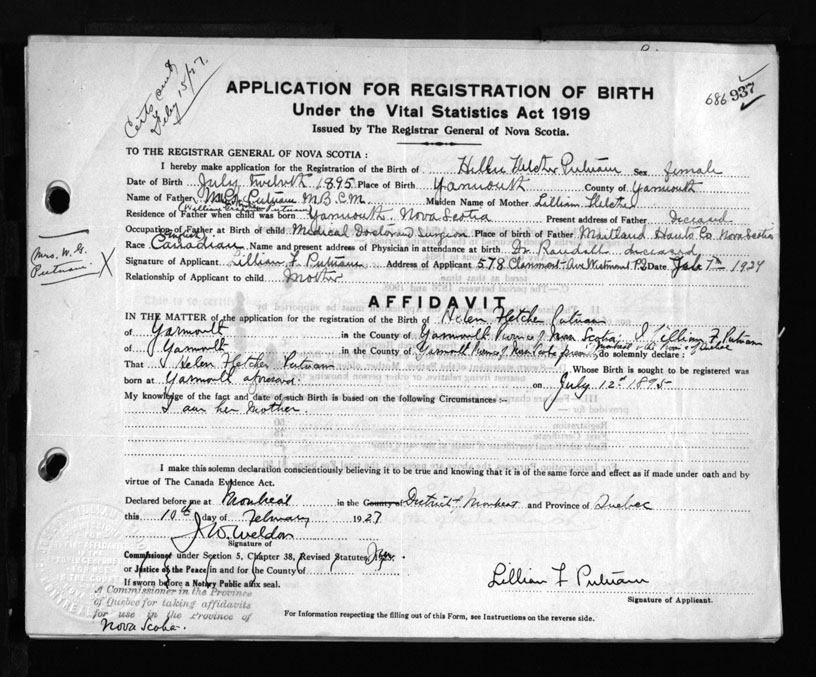 Certs sent
Feby 15/27
686 937
APPLICATION FOR REGISTRATION OF BIRTH
Under the Vital Statistics Act 1919
Issued by The Registrar General of Nova Scotia.
TO THE REGISTRAR GENERAL OF NOVA SCOTIA :
I hereby make application for the Registration of the Birth of Fletcher Putnam Sex female
Date of Birth July twelvth 1895 Place of Birth Yarmouth County of Yarmouth
Name of Father Putnam M.B.C.M. Maiden Name of Mother Lillian Fletcher
(William Putnam)
Residence of Father when child was born Yarmouth Nova Scotia Present address of Father deceased
Occupation of Father at Birth of child Medical Doctor and Surgeon Place of birth of Father Maitland Hants Co Nova Scotia
Race Canadian Name and present address of Physician in attendance at birth Dr. Randall deceased
Mrs. W. G.
Putnam
Signature of Applicant Lillian F. Putnam Address of Applicant 578 Claremont Ave Westmount P.Q Date 7th 1927
Relationship of Applicant to child Mother
AFFIDAVIT
IN THE MATTER of the application for the registration of the Birth of Helen Fletcher Putnam
of Yarmouth in the County of Yarmouth Province of Nova Scotia, I Lillian F. Putnam
of Yarmouth in the County of Yarmouth Province of Nova Scotia do solemnly declare :
That Helen Fletcher Putnam Whose Birth is sought to be registered was
born at Yarmouth aforesaid on July 12th 1895
My knowledge of the fact and date of such Birth is based on the following Circumstances :-
I am her Mother.
I make this solemn declaration conscientiously believing it to be true and knowing that it is of the same force and effect as if made under oath and by
virtue of The Canada Evidence Act.
Declared before me at Montreal in the County of District of Montreal and Province of Quebec
this 10th day of February 1927
J. W. Weldon
Signature of
Commissioner under Section 5, Chapter 38, Revised Statutes, 1923.
or Justice of the Peace in and for the County of
If sworn before a Notary Public affix seal.
A Commissioner in the Province
of Quebec for taking affidavits
for use in the Province of
Nova Scotia.
Lillian F Putnam
Signature of Applicant.
For Information respecting the filling out of this Form, see Instructions on the reverse side.